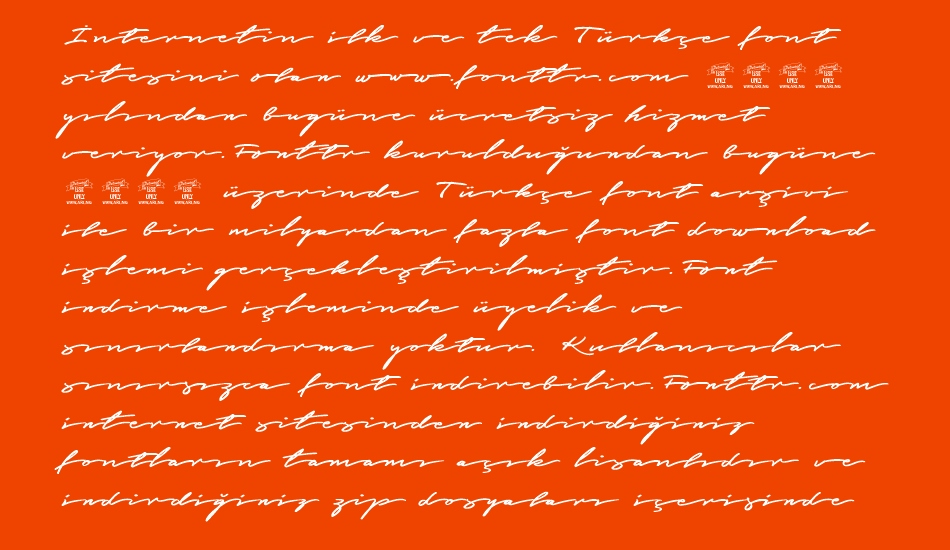 İnternetin ilk ve tek Türkçe font
sitesini olan www.fonttr.com
yılından bugüne ücretsiz hizmet
veriyor. Fonttr kurulduğundan bugüne
üzerinde Türkçe font arşivi
ile bir milyardan fazla font download
işlemi gerçekleştirilmiştir. Font
indirme işleminde üyelik ve
sınırlandırma yoktur. Kullanıcılar
sınırsızca font indirebilir. Fonttr.com
internet sitesinden indirdiğiniz
fontların tamamı açık lisanlıdır ve
indirdiğiniz zip dosyaları içerisinde